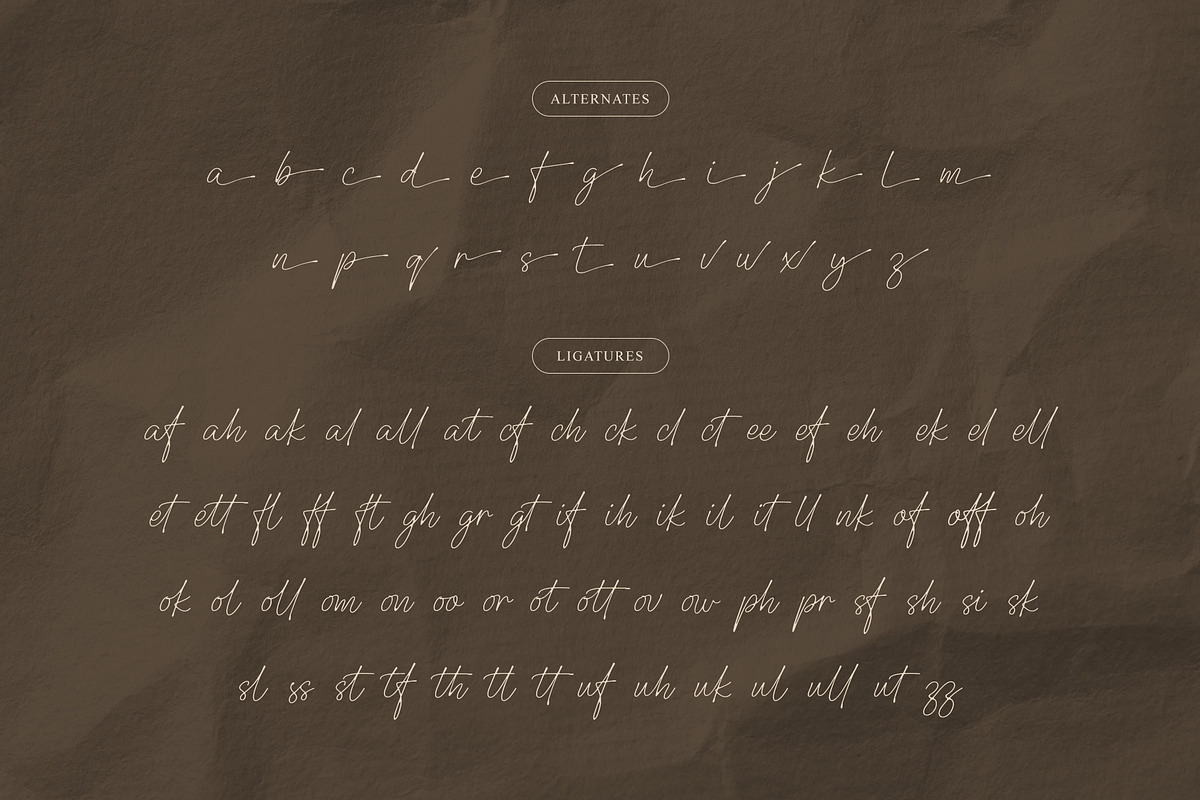 ALTERNATES
a b c d e f g h i j k l m
n p q r s t u v w x y z
LIGATURES
af ah ak al all at cf ch ck cl ct ee ef eh ek el ell
et ett fl ff ft gh gr gt if ih ik il it ll nk of off oh
ok ol oll om on oo or ot ott ov ow ph pr sf sh si sk
sl ss st tf th tl tt uf uh uk ul ull ut zz